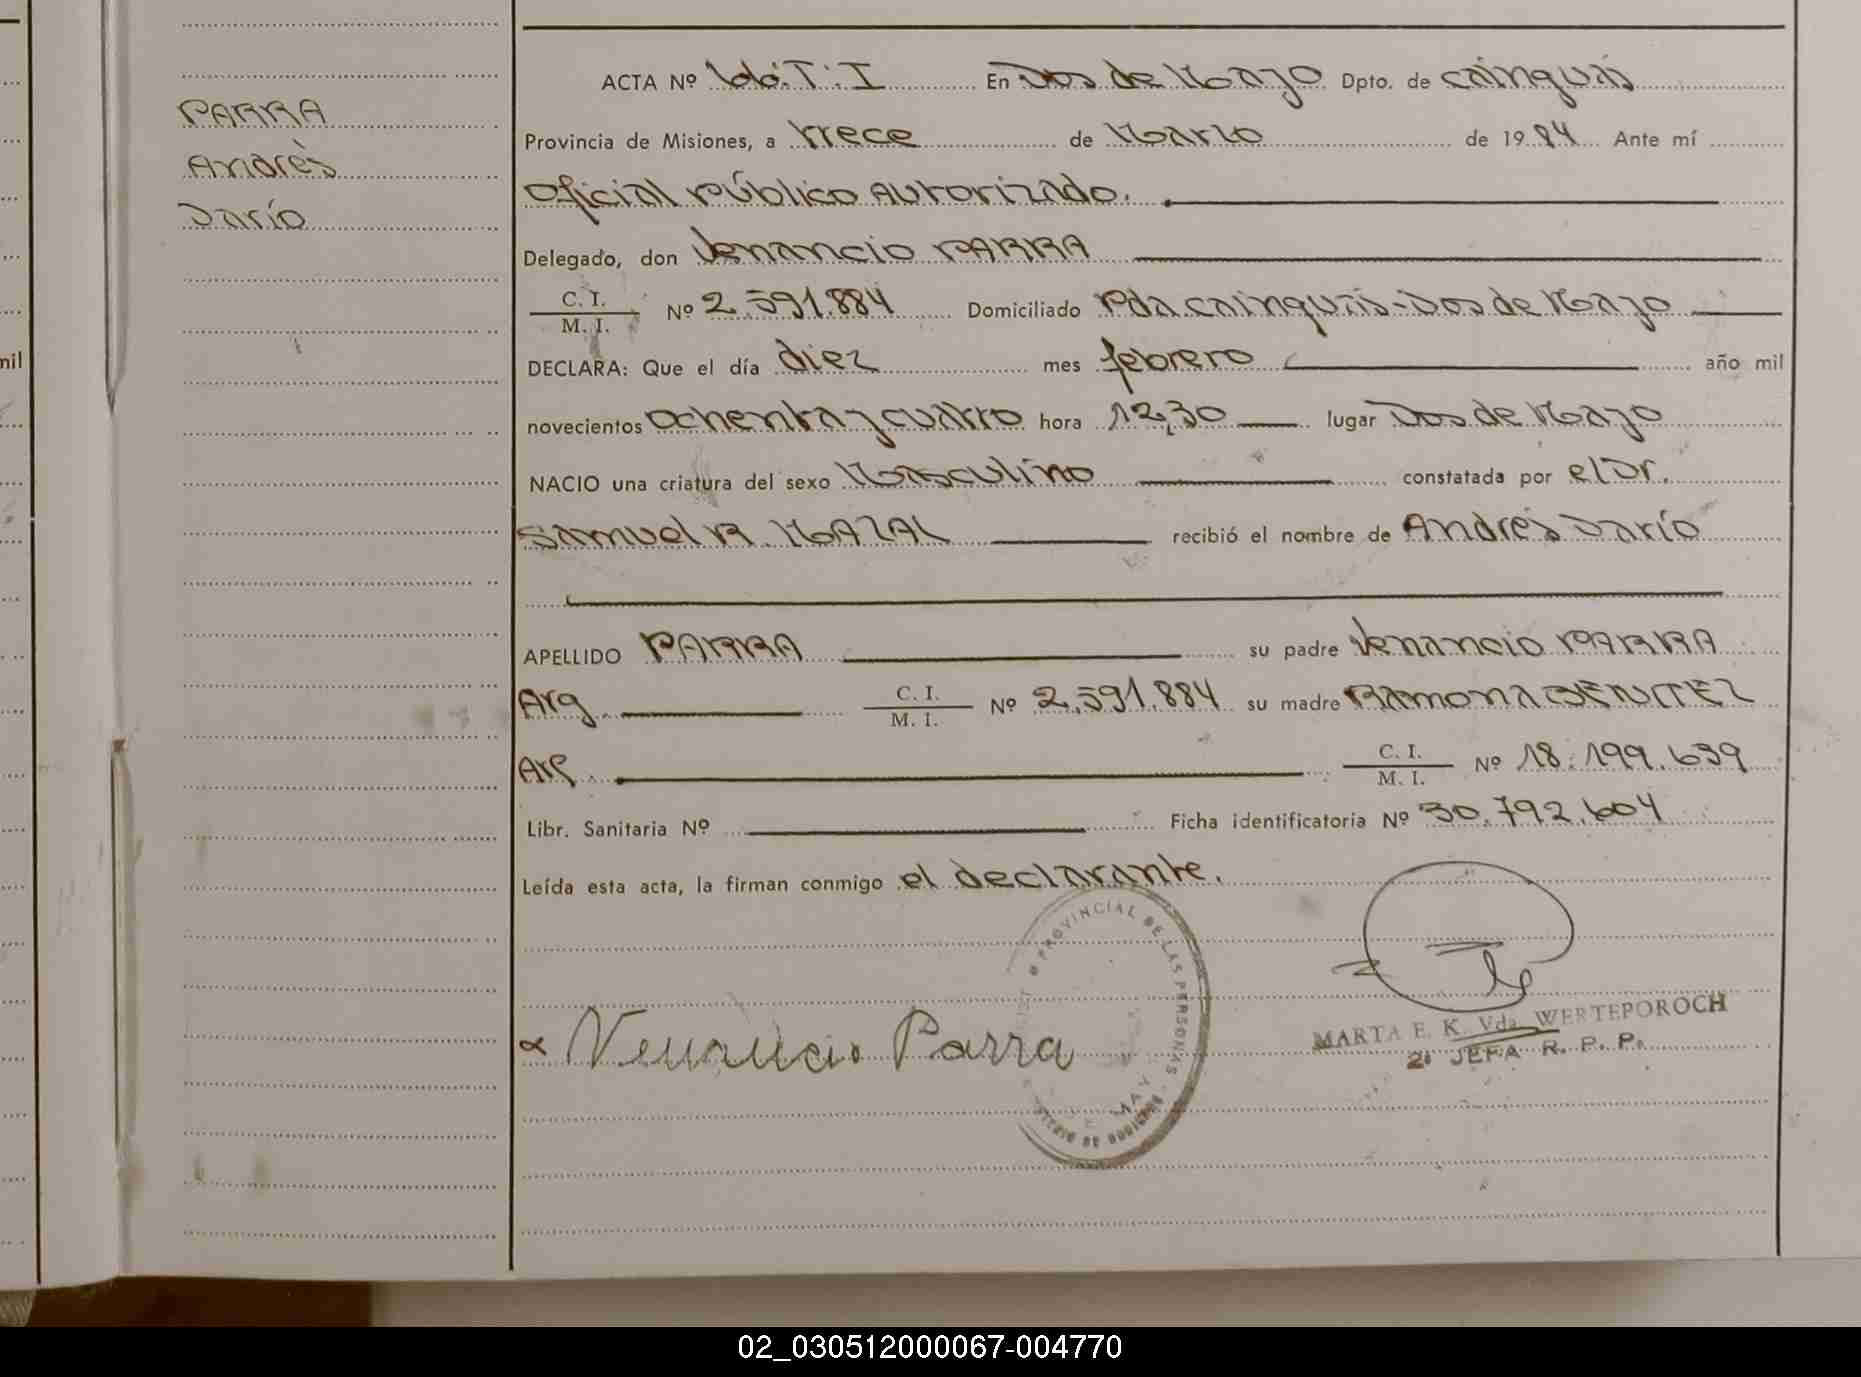 PARRA
Andrés
Darío
mil
ACTA Nº 166.T.I En Dos de Mayo Dpto. de Cainguás
Provincia de Misiones, a trece de Marzo de 1984 Ante mí
Oficial Público Autorizado.
Delegado, don Venancio PARRA
C. I.
M. I. Nº 2.591.884 Domiciliado Pda. Cainguás-Dos de Mayo
DECLARA: Que el día diez mes febrero año mil
novecientos ochenta y cuatro hora 12,30 lugar Dos de Mayo
NACIO una criatura del sexo Masculino constatada por el Dr.
Samuel R. MAZAL recibió el nombre de Andrés Darío
APELLIDO PARRA su padre Venancio PARRA
Arg. C. I.
M. I. Nº 2.591.884 su madre Ramona BENITEZ
Arg. C. I.
M. I. Nº 18.199.639
Libr. Sanitaria Nº Ficha identificatoria Nº 30.792.604
Leída esta acta, la firman conmigo el declarante.
PROVINCIAL DE LAS PERSONAS
Venancio Parra
MARTA E. K. Vda. WERTEPOROCH
JEFA R. P. P.
02_030512000067-004770